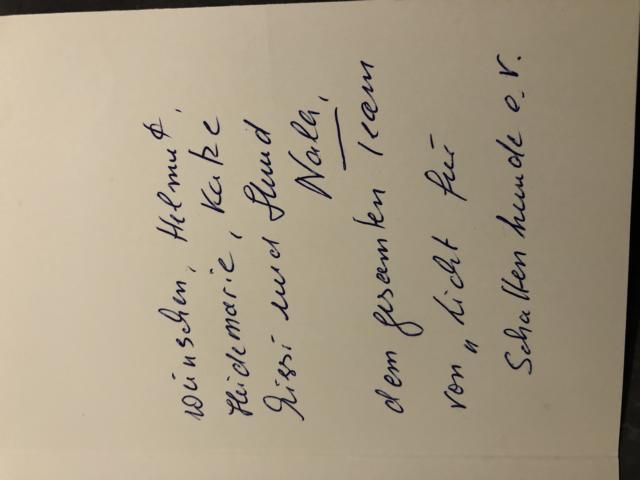 wünschen, Helmut,
Heidemarie, Katze
und Hund
Nala,
dem gesamten Team
von „Licht für
Schattenhunde e.V.